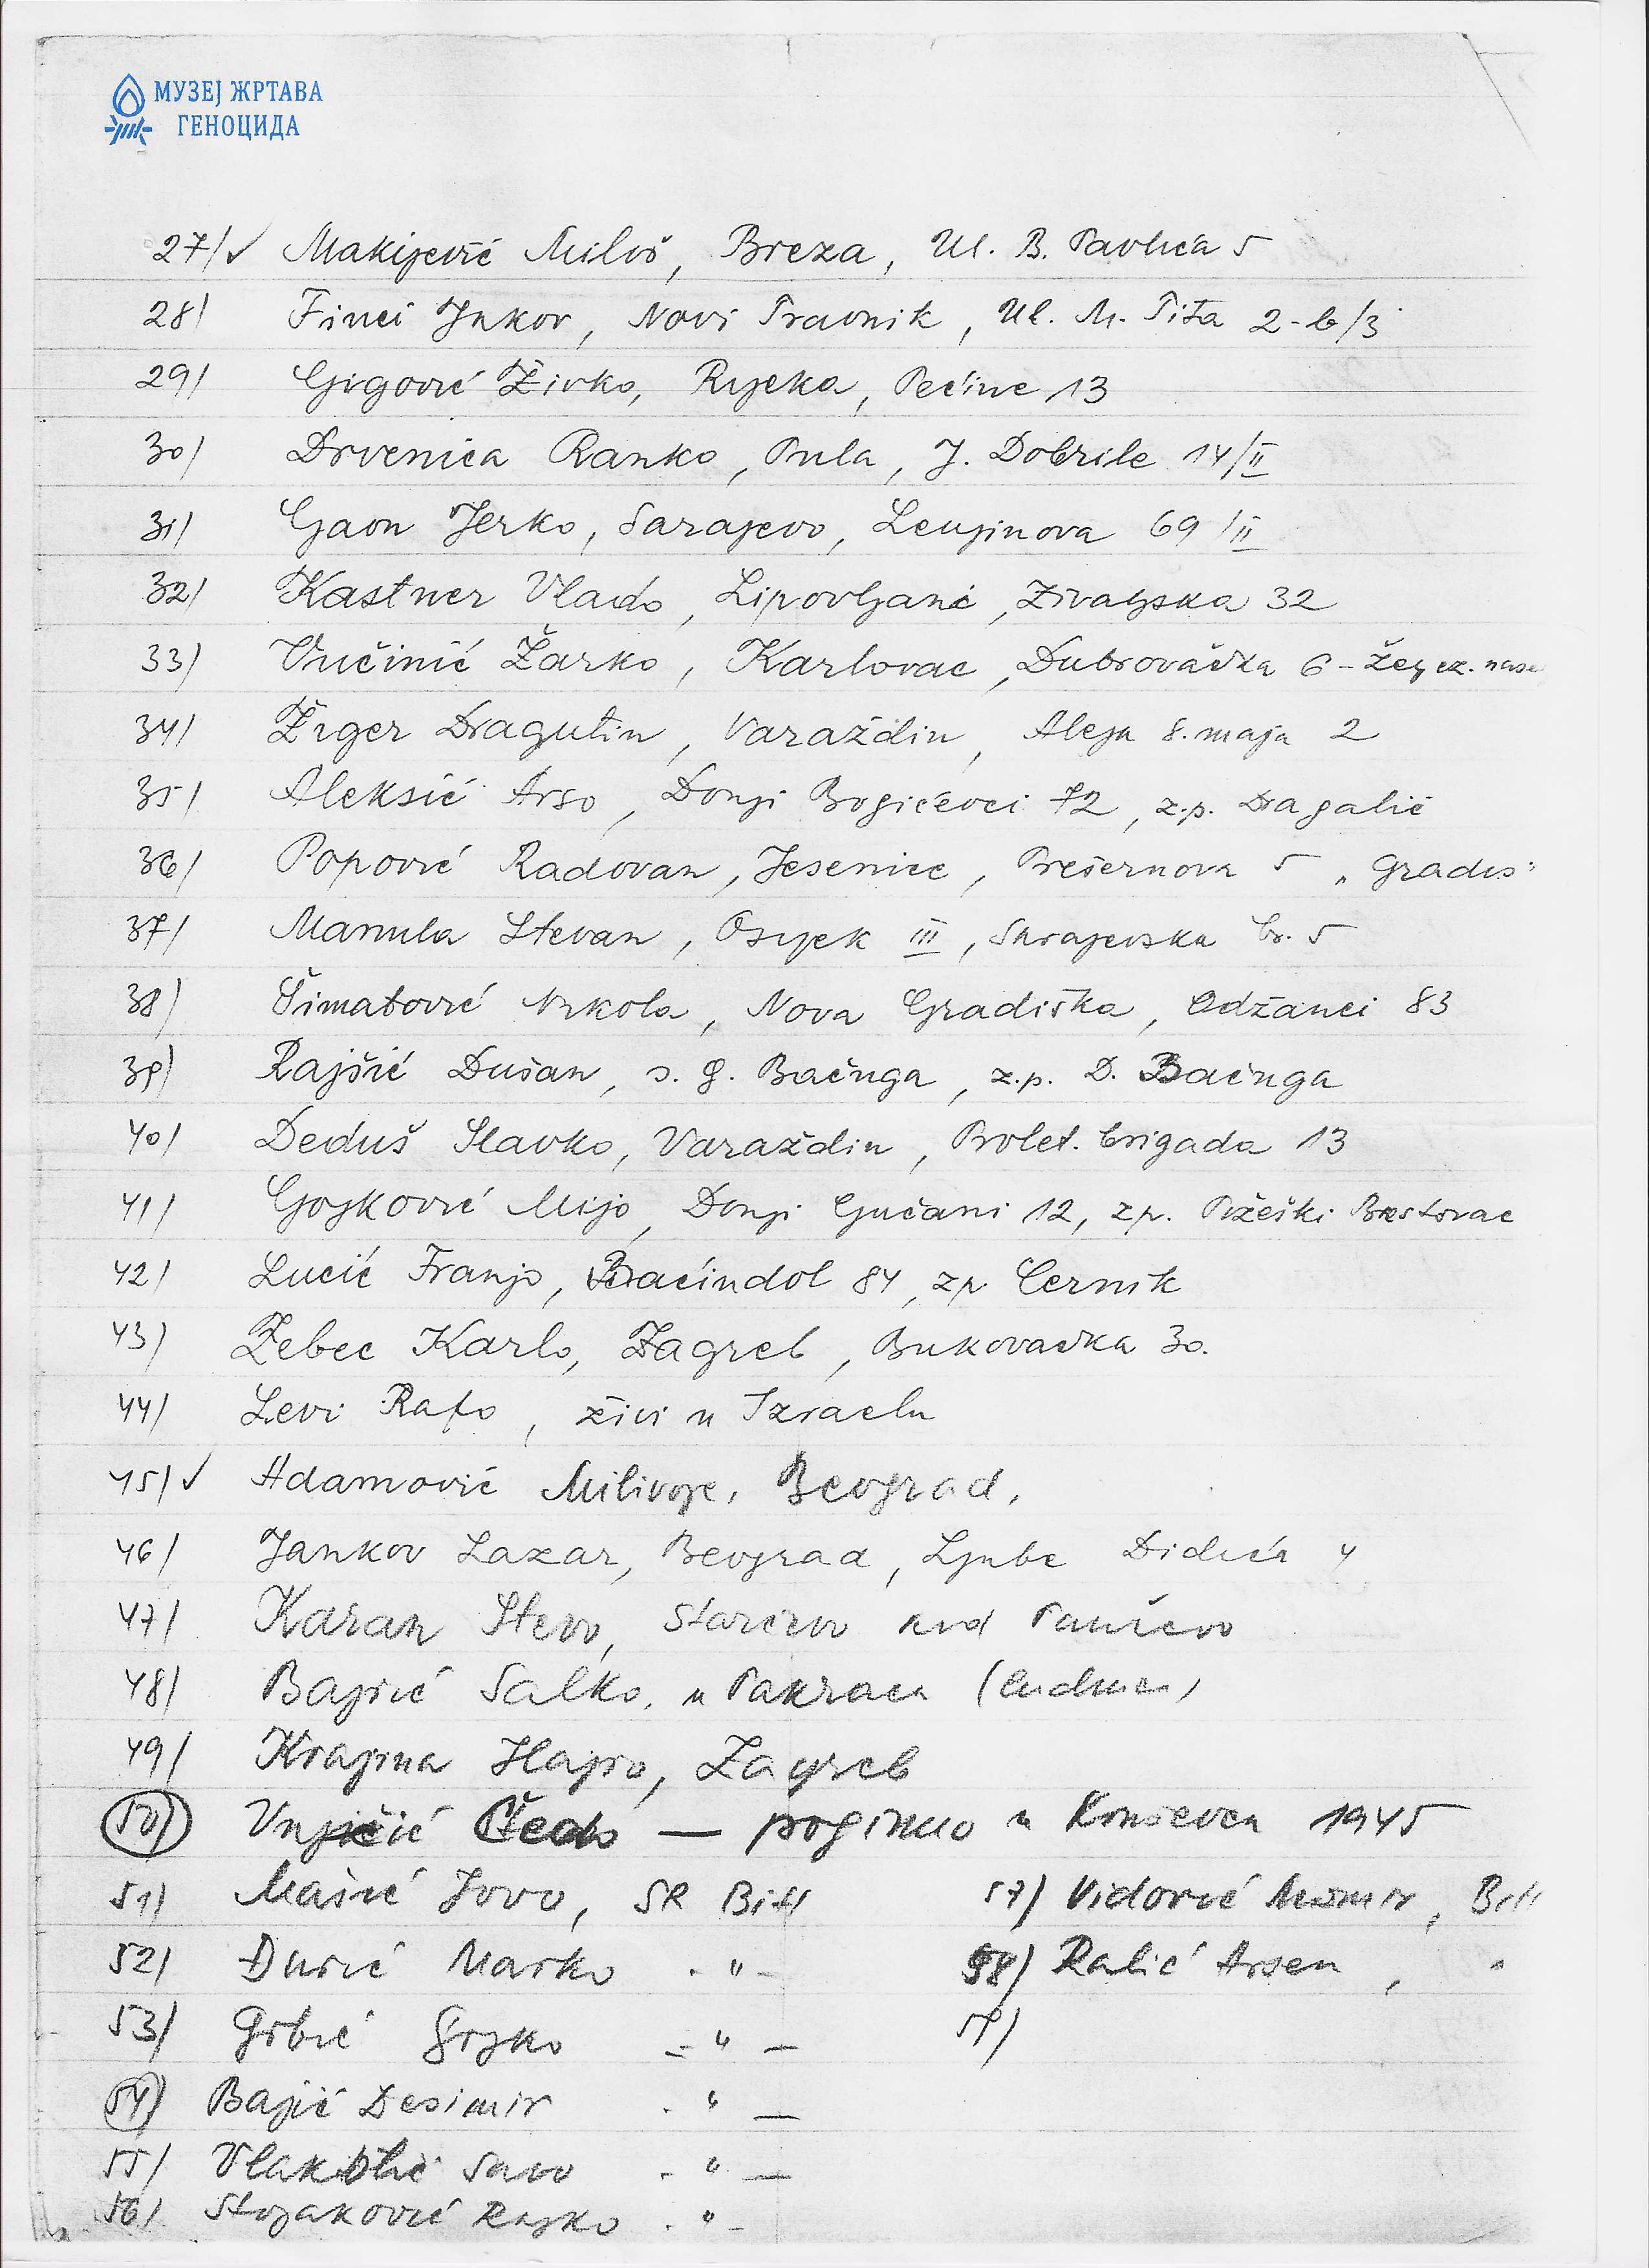 МУЗЕЈ ЖРТАВА
ГЕНОЦИДА
27/ ✓ Makijević Miloš, Breza, Ul. B. Pavlića 5
28/ Finci Jakov, Novi Travnik, Ul. M. Tita 2-b/3
29/ Gigović Živko, Rijeka, Pećine 13
30/ Drvenica Ranko, Pula, J. Dobrile 14/II
31/ Gaon Jerko, Sarajevo, Lenjinova 69/II
32/ Kastner Vlado, Lipovljani, 32
33/ Vučinić Žarko, Karlovac, Dubrovačka 6 -
34/ Žiger Dragutin, Varaždin, Aleja 8. maja 2
35/ Aleksić Arso, Donji Bogićevci 72, z.p. Dragalić
36/ Popović Radovan, Jesenice, Prešernova 5 „Gradis"
37/ Mamula Stevan, Osijek III, Sarajevska br. 5
38/ Šimatović Nikola, Nova Gradiška, Adžanci 83
39/ Rajšić Dušan, s. g. Bačuga, z.p. D. Bačuga
40/ Deduš Slavko, Varaždin, Prolet. brigada 13
41/ Gojković Mijo, Donji Gučani 12, zp. Pžeški Brestovac
42/ Lucić Franjo, Baćindol 84, zp Cernik
43/ Žebec Karlo, Zagreb, Bukovačka 30.
44/ Levi Rafo, živi u Izraelu
45/ ✓ Adamović Milivoje, Beograd,
46/ Jankov Lazar, Beograd, Ljube Didića 4
47/ Karan Stevo, Starčevo kod Pančevo
48/ Bajrić Salko, u Pakracu
49/ Krajina Ilajio, Zagreb
50/ Vujičić Čedo — poginuo u 1945
51/ Mašić Jovo, SR BiH
57/ Vidović Momir, BiH
52/ Đurić Marko - " -
58/ Ralić Arsen, "
53/ Grbić Gojko - " -
59/
54/ Bajić Desimir - " -
55/ Savo - " -
56/ Stojaković Rajko - " -